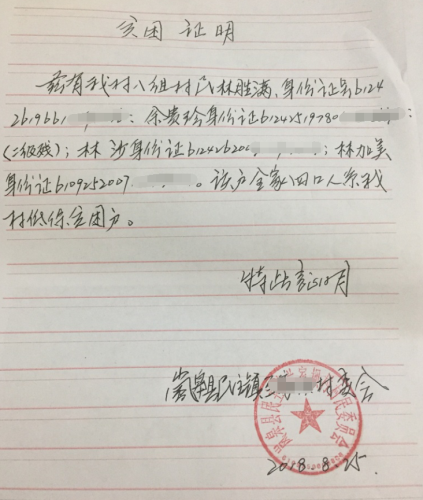 贫困证明
兹有我村八组村民林胜满、身份证号61242
2619661 : 余贵珍身份证61242519780 :
(二级残); 林 沙身份证6124262000 ; 林加美
身份证6109252007 。该户全家四口人系我
村低保贫困户。
特此证明
岚皋县民主镇 村委会
2018.8.25.